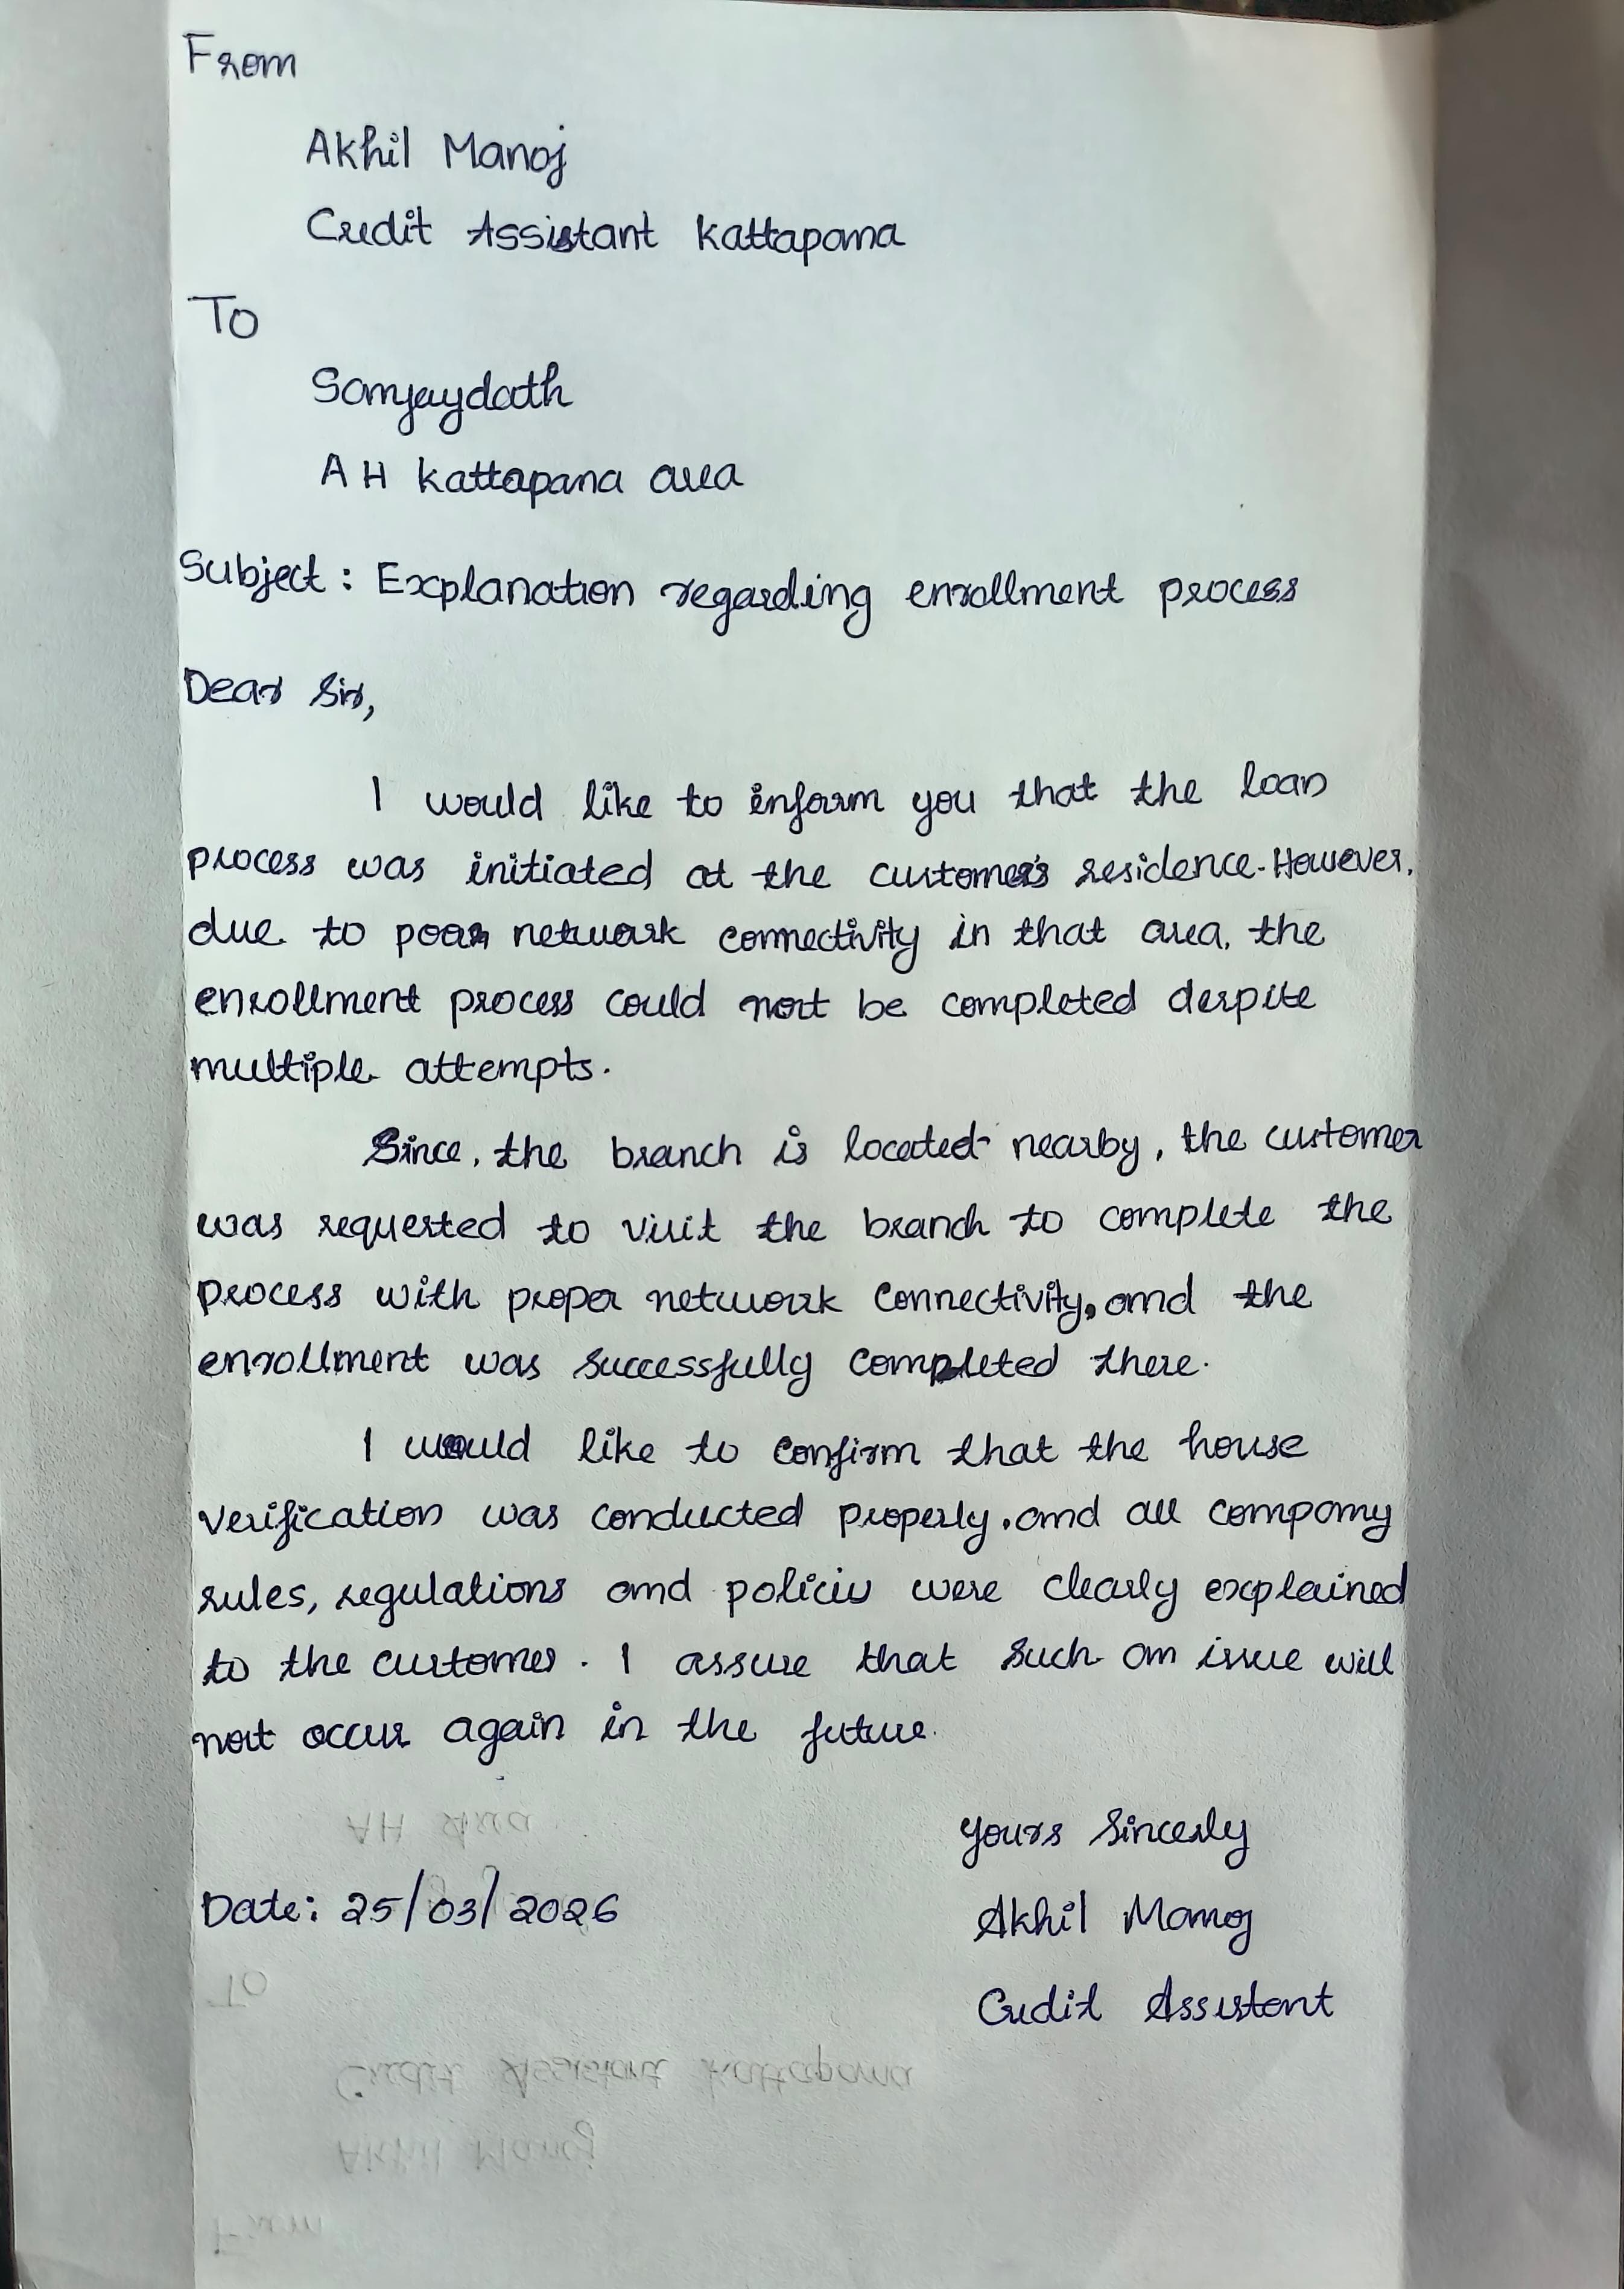 From
Akhil Manoj
Credit Assistant Kattapana
To
Sanjaydath
A H Kattapana area
Subject : Explanation regarding enrollment process
Dear Sir,
I would like to inform you that the loan
process was initiated at the customer's residence. However,
due to poor network connectivity in that area, the
enrollment process could not be completed despite
multiple attempts.
Since, the branch is located nearby, the customer
was requested to visit the branch to complete the
process with proper network connectivity, and the
enrollment was successfully completed there.
I would like to confirm that the house
verification was conducted properly, and all company
rules, regulations and policies were clearly explained
to the customer. I assure that such an issue will
not occur again in the future.
AH Area
Yours Sincerly
Date: 25/03/2026
Akhil Manoj
To
Credit Assistant
Credit Assistant Kattapana
Akhil Manoj
From